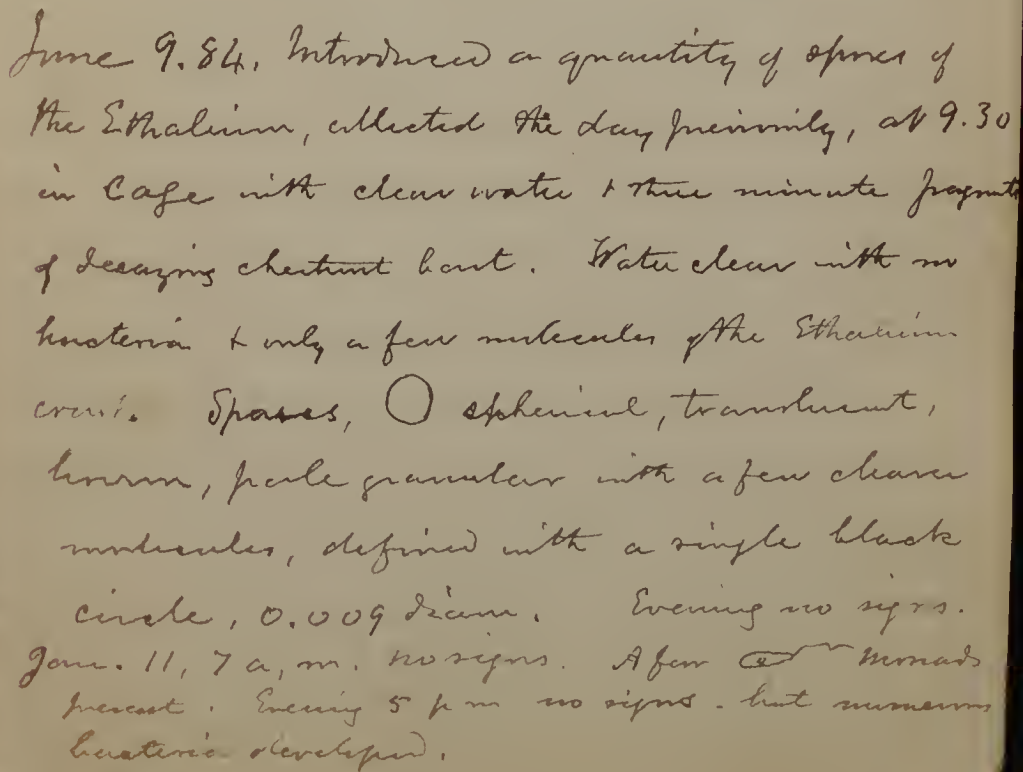 June 9. 84. Introduced a quantity of spores of
the Ethalium, collected the day previously, at 9.30
in Cage with clear water + three minute fragments
of decaying chestnut bark. Water clear with no
bacteria + only a few molecules of the Ethalium
crust. Spores, spherical, translucent,
brown, pale granular with a few clearer
molecules, defined with a single black
circle, 0.009 diam. Evening no signs.
11, 7 a, m. no signs. A few monads
present. Evening 5 p m no signs - but numerous
bacteria developed.